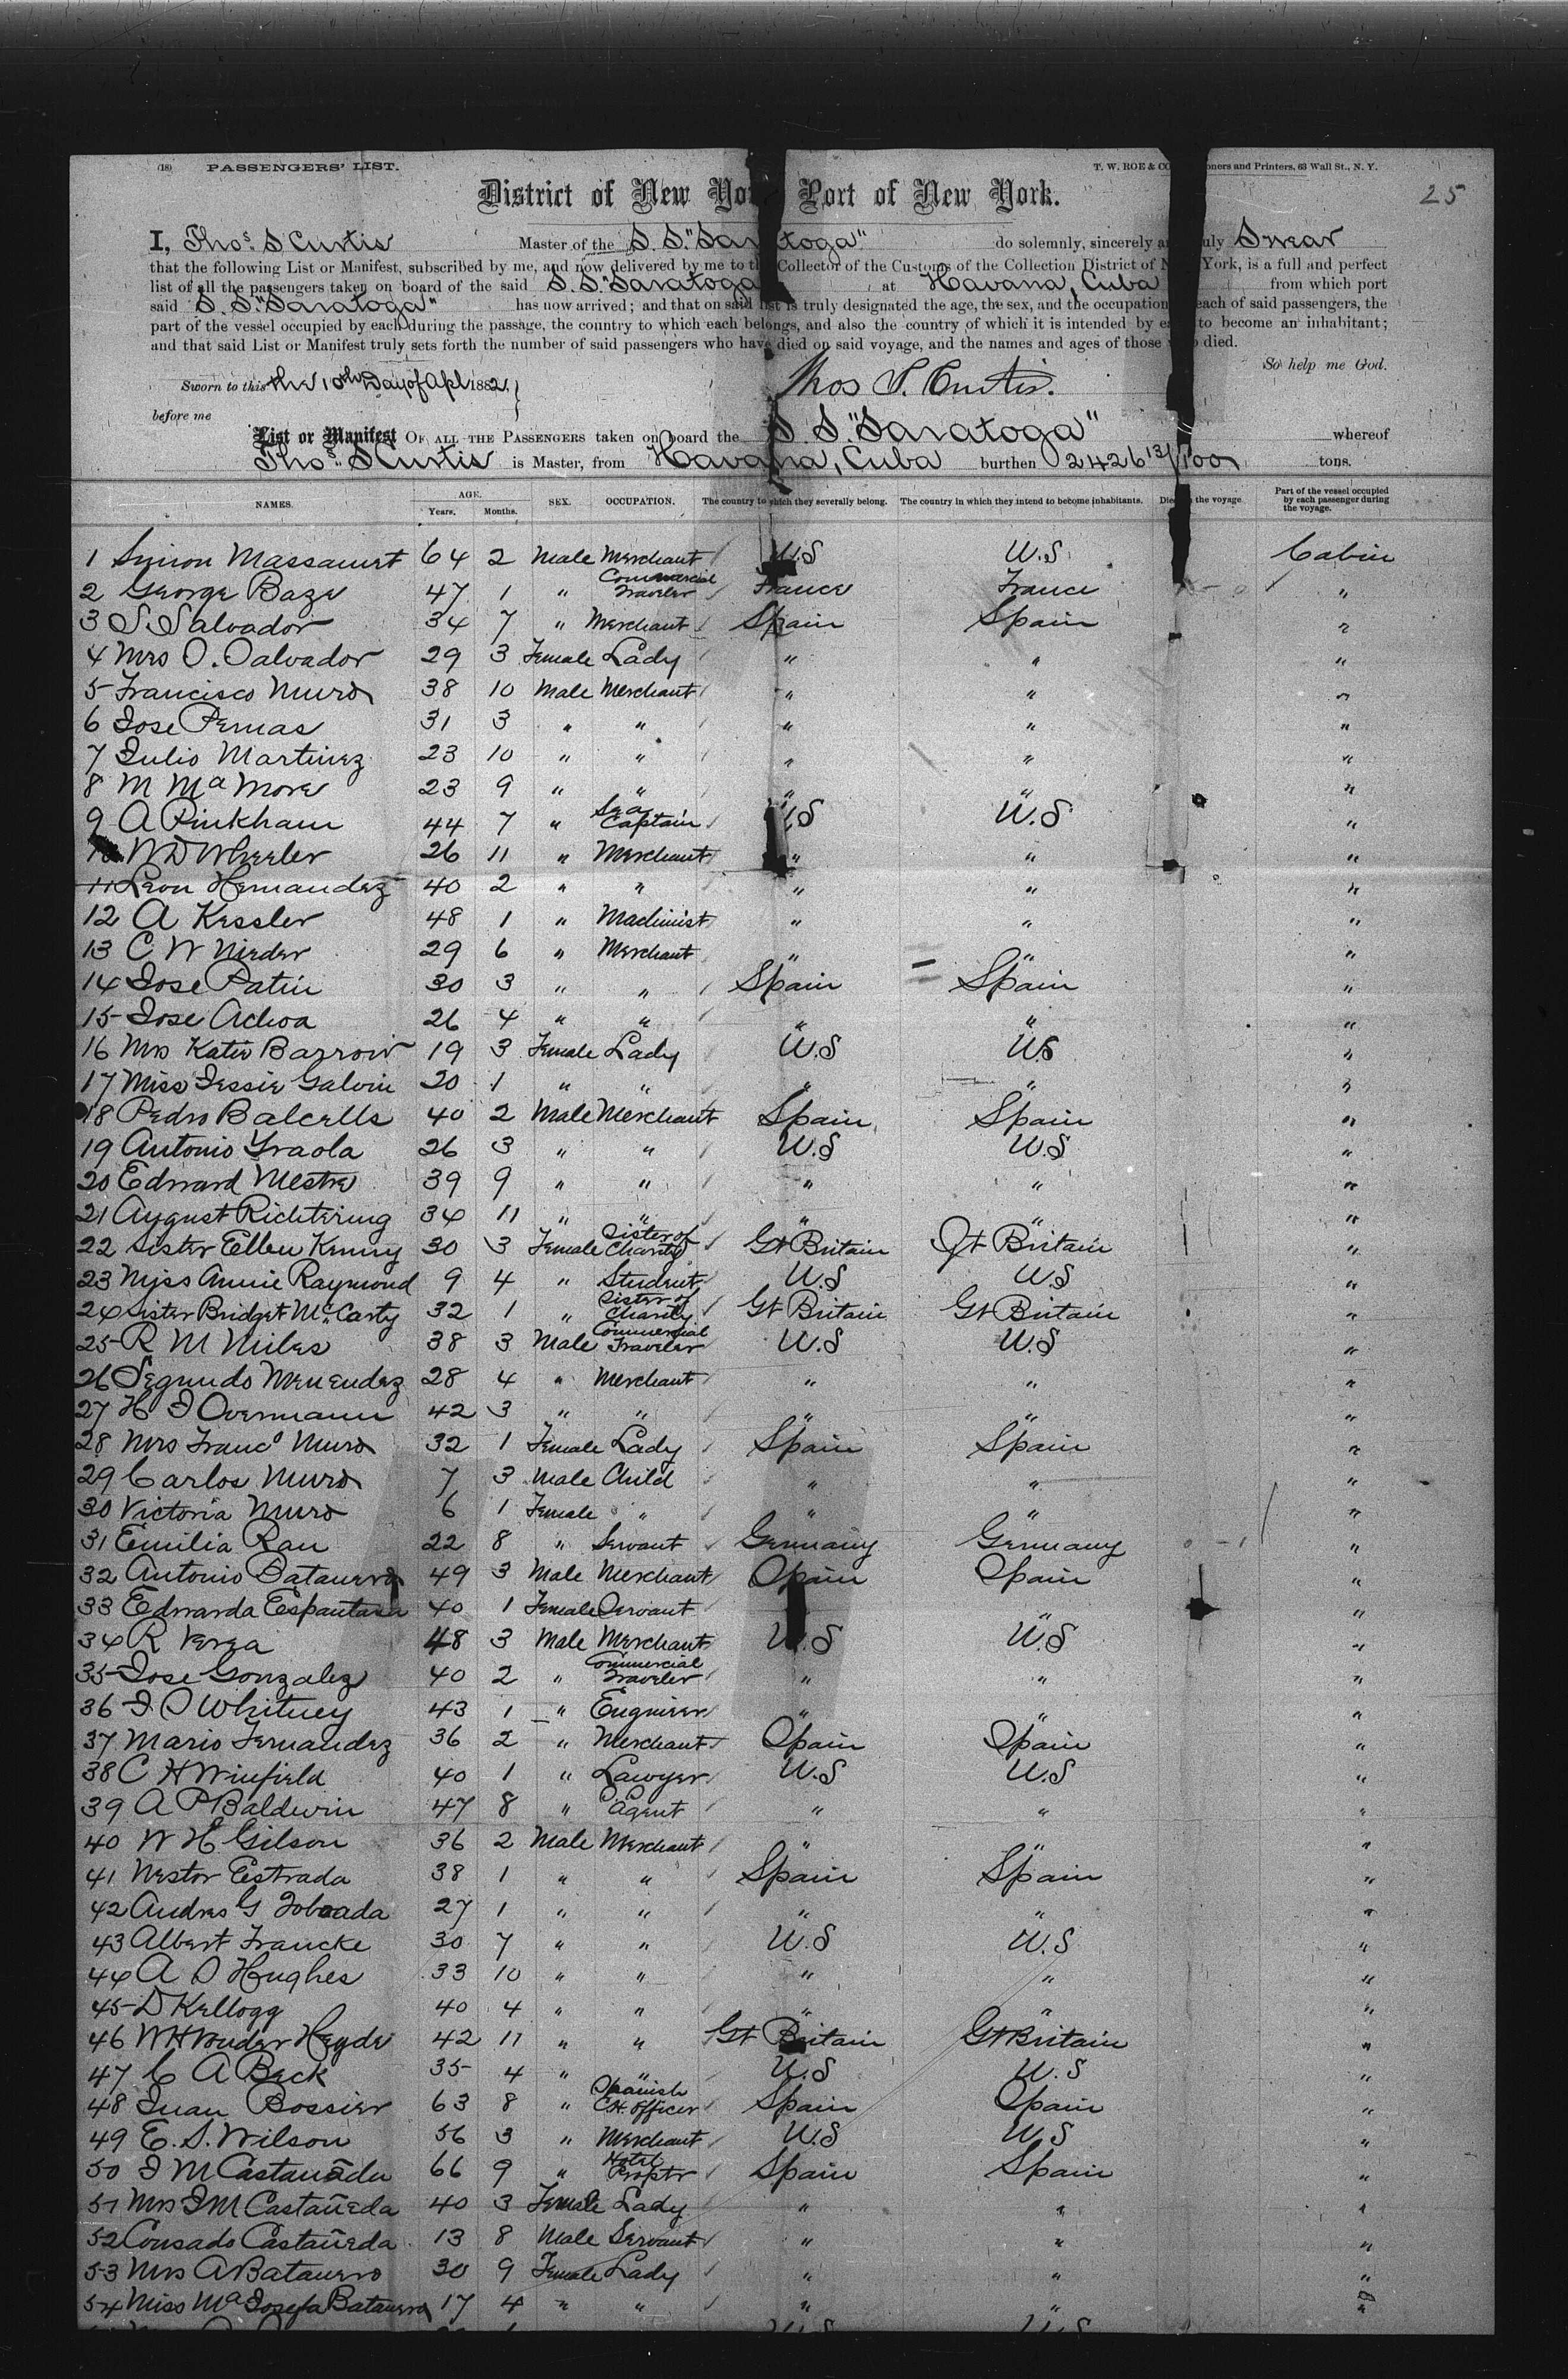 (18) PASSENGERS' LIST. T. W. ROE & CO oners and Printers, 63 Wall St., N. Y.
25
District of New Yor Port of New York.
I, Thos. S Curtis Master of the S. S. "Saratoga" do solemnly, sincerely a uly Swear
that the following List or Manifest, subscribed by me, and now delivered by me to t Collector of the Customs of the Collection District of N York, is a full and perfect
list of all the passengers taken on board of the said S. S. "Saratoga at Havana, Cuba from which port
said S. S. "Saratoga" has now arrived; and that on said list is truly designated the age, the sex, and the occupation each of said passengers, the
part of the vessel occupied by each during the passage, the country to which each belongs, and also the country of which it is intended by ea to become an inhabitant;
and that said List or Manifest truly sets forth the number of said passengers who have died on said voyage, and the names and ages of those o died.
So help me God.
Sworn to this the 10th Day of Apl 1882,
Thos S. Curtis.
before me
List or Manifest OF ALL THE PASSENGERS taken on board the S. S. "Saratoga" whereof
Thos. S Curtis is Master, from Havana, Cuba burthen 2426 13/100 tons.
NAMES. AGE. Years. Months. SEX. OCCUPATION. The country to which they severally belong. The country in which they intend to become inhabitants. Died n the voyage Part of the vessel occupied by each passenger during the voyage.
1 Simon Massamet 64 2 Male Merchant U.S U.S. Cabin
2 George Baze 47 1 " Commercial Traveler France France "
3 S. Salvador 34 7 " Merchant Spain Spain "
4 Mrs O. Salvador 29 3 Female Lady " " "
5 Francisco Muro 38 10 Male Merchant " " "
6 Jose Pernas 31 3 " " " " "
7 Julio Martinez 23 10 " " " " "
8 M Ma More 23 9 " " " " "
9 A Pinkham 44 7 " Sea Captain U.S U.S "
10 W D Wheeler 26 11 " Merchant " " "
11 Leon Hernandez 40 2 " " " " "
12 A Kessler 48 1 " Machinist " " "
13 C W Nieder 29 6 " Merchant " " "
14 Jose Patin 30 3 " " Spain Spain "
15 Jose Achoa 26 4 " " " " "
16 Mrs Katie Barrow 19 3 Female Lady U.S US "
17 Miss Jessie Galvin 20 1 " " " " "
18 Pedro Balcells 40 2 Male Merchant Spain Spain "
19 Antonio Yraola 26 3 " " U.S U.S "
20 Edward Mestre 39 9 " " " " "
21 August Richtering 34 11 " " " " "
22 Sister Ellen Kenny 30 3 Female Sister of Charity Gt Britain Gt Britain "
23 Miss Annie Raymond 9 4 " Student U.S U.S "
24 Sister Bridget McCarty 32 1 " Sister of Charity Gt Britain Gt Britain "
25 R M Miles 38 3 Male Commercial Traveler U.S U.S "
26 Segundo Menendez 28 4 " Merchant " " "
27 H J Overmann 42 3 " " " " "
28 Mrs Franco Muro 32 1 Female Lady Spain Spain "
29 Carlos Muro 7 3 Male Child " " "
30 Victoria Muro 6 1 Female " " " "
31 Emilia Rau 22 8 " Servant Germany Germany "
32 Antonio Batanero 49 3 Male Merchant Spain Spain "
33 Edwarda 40 1 Female Servant " "
34 R Verea 48 3 Male Merchant U.S U.S "
35 Jose Gonzalez 40 2 " Commercial Traveler " " "
36 J S Whitney 43 1 " Engineer " " "
37 Mario Fernandez 36 2 " Merchant Spain Spain "
38 C H Winfield 40 1 " Lawyer U.S U.S "
39 A P Baldwin 47 8 " Agent " " "
40 W H Gilson 36 2 Male Merchant " " "
41 Nestor Estrada 38 1 " " Spain Spain "
42 Andres G Toboada 27 1 " " " " "
43 Albert Francke 30 7 " " U.S U.S "
44 A D Hughes 33 10 " " " " "
45 D Kellogg 40 4 " " " " "
46 W H Vonder Heyde 42 11 " " Gt Britain Gt Britain "
47 C A Beck 35 4 " " U.S U.S "
48 Juan Bossier 63 8 " Spanish C.H. Officer Spain Spain "
49 E. S. Wilson 56 3 " Merchant U.S U.S "
50 J M Castañeda 66 9 " Hotel Proptr Spain Spain "
51 Mrs J M Castañeda 40 3 Female Lady " " "
52 Consado Castañeda 13 8 Male Servant " " "
53 Mrs A Batanero 30 9 Female Lady " " "
54 Miss Ma Josefa Batanero 17 4 " " " " "